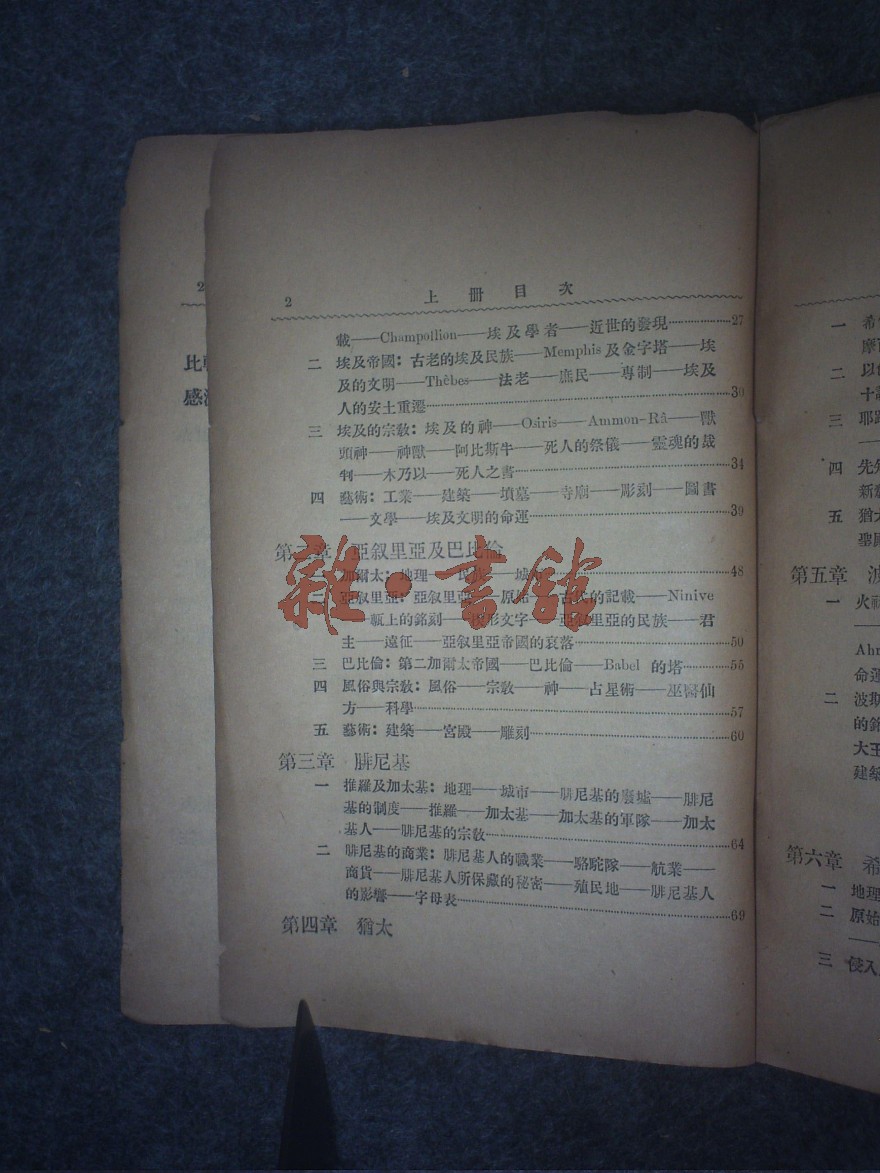 2 上册目次
載——Champollion——埃及學者——近世的發現……27
二 埃及帝國：古老的埃及民族——Memphis及金字塔——埃
及的文明——Thèbes——法老——庶民——專制——埃及
人的安土重遷……30
三 埃及的宗教：埃及的神——Osiris——Ammon-Râ——獸
頭神——神獸——阿比斯牛——死人的祭儀——靈魂的裁
判——木乃以——死人之書……34
四 藝術：工業——建築——墳墓——寺廟——彫刻——圖書
——文學——埃及文明的命運……39
第二章 亞叙里亞及巴比倫
加爾太：地理——民族——城市……48
亞叙里亞：亞叙里亞——原始——古代的記載——Ninive
——瓶上的銘刻——形文字——亞叙里亞的民族——君
主——遠征——亞叙里亞帝國的衰落……50
三 巴比倫：第二加爾太帝國——巴比倫——Babel 的塔……55
四 風俗與宗教：風俗——宗教——神——占星術——巫醫仙
方——科學……57
五 藝術：建築——宮殿——雕刻……60
第三章 腓尼基
一 推羅及加太基：地理——城市——腓尼基的廢墟——腓尼
基的制度——推羅——加太基——加太基的軍隊——加太
基人——腓尼基的宗教……64
二 腓尼基的商業：腓尼基人的職業——駱駝隊——航業——
商貨——腓尼基人所保藏的秘密——殖民地——腓尼基人
的影響——字母表……69
第四章 猶太
雜·書館
2
比
感
一 希
摩
二 以
十
三 耶
四 先知
新
五 猶太
聖國
第五章 波
一 火
Ah
命運
二 波斯
的銘
大王
建築
第六章 希
一 地理
二 原始
三 侵入